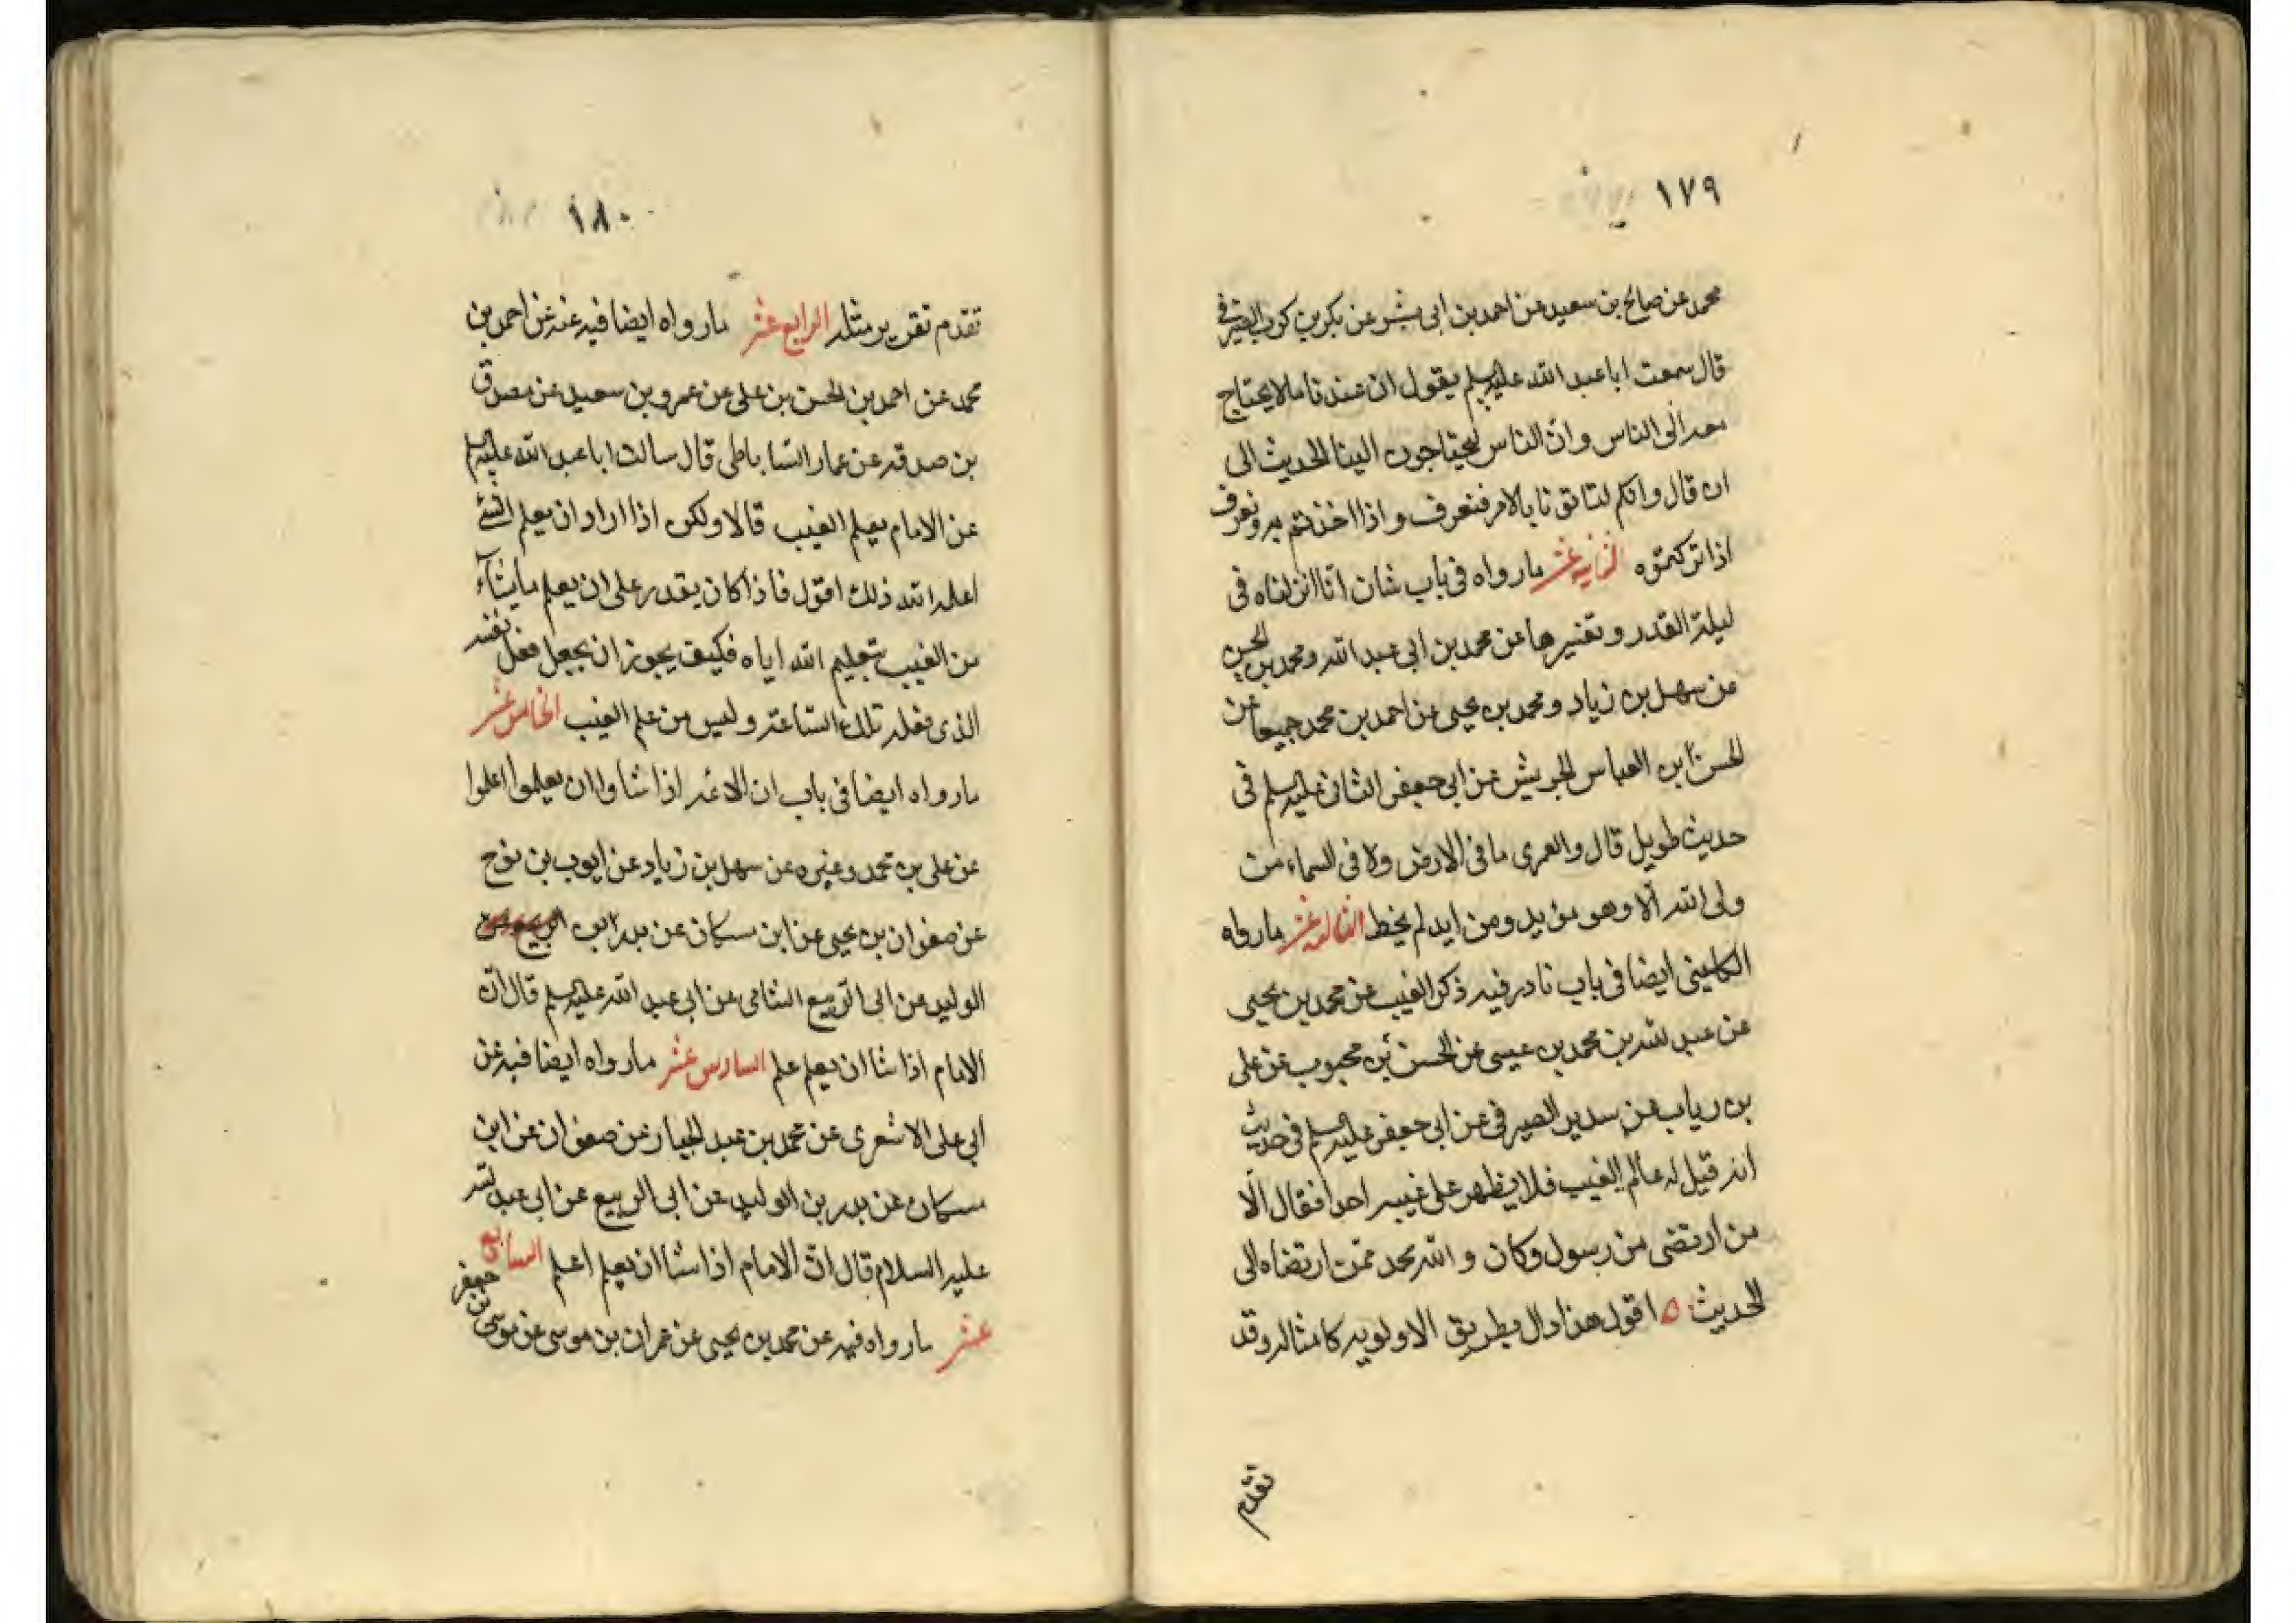 ١٧٩
محمد عن صالح بن سعيد عن احمد بن ابى بشر عن بكر بن كرب الصيرفى
قال سمعت ابا عبد الله عليه السلم يقول ان عندنا ما لا يحتاج
معه الى الناس وان الناس ليحتاجون الينا الحديث الى
ان قال وانكم لتاتونا بالامر فنعرف اذا اخذتم به ونعرف
اذا تركتموه الثانيه عشر ما رواه فى باب شان انا انزلناه فى
ليلة القدر وتفسيرها عن محمد بن ابى عبد الله ومحمد بن الحسن
عن سهل بن زياد ومحمد بن يحيى عن احمد بن محمد جميعا عن
الحسن ابن العباس الجريش عن ابى جعفر الثانى عليه السلم فى
حديث طويل قال والعمرى ما فى الارض ولا فى السماء من
ولى الله الا وهو مؤيد ومن ايد لم يخط الثالث عشر ما رواه
الكلينى ايضا فى باب نادر فيه ذكر الغيب عن محمد بن يحيى
عن عبد الله بن محمد بن عيسى عن الحسن بن محبوب عن على
بن رياب عن سدير الصيرفى عن ابى جعفر عليه السلم فى حديث
انه قيل له عالم الغيب فلا يظهر على غيبه احدا فقال الا
من ارتضى من رسول وكان والله محمد ممن ارتضاه الى
الحديث ه اقول هذا دال بطريق الاولويه كامثاله وقد
تقدم
١٨٠
تقدم تقرير مثله الرابع عشر ما رواه ايضا فيه عنه عن احمد بن
محمد عن احمد بن الحسن بن على عن عمرو بن سعيد عن مصدق
بن صدقه عن عمار الساباطى قال سالت ابا عبد الله عليه السلم
عن الامام يعلم الغيب قال لا ولكن اذا اراد ان يعلم الشئ
اعلمه الله ذلك اقول فاذا كان يقدر على ان يعلم ما يشآء
من الغيب بتعليم الله اياه فكيف يجوز ان يجعل فعل نفسه
الذى فعله تلك الساعة وليس من علم الغيب الخامس عشر
ما رواه ايضا فى باب ان الائمه اذا شاوا ان يعلموا اعلموا
عن على بن محمد وغيره عن سهل بن زياد عن ايوب بن نوح
عن صفوان بن يحيى عن ابن مسكان عن بدر ابن
الوليد عن ابى الربيع الشامى عن ابى عبد الله عليه السلم قال ان
الامام اذا شا ان يعلم علم السادس عشر ما رواه ايضا فيه عن
ابى على الاشعرى عن محمد بن عبد الجبار عن صفوان عن ابن
مسكان عن بدر بن الوليد عن ابى الربيع عن ابى عبد الله
عليه السلام قال ان الامام اذا شا ان يعلم اعلم السابع
عشر ما رواه فيه عن محمد بن يحيى عن عمران بن موسى عن موسى بن جعفر